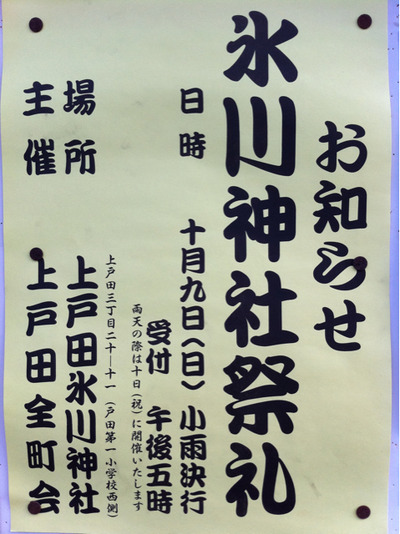 お知らせ
氷川神社祭礼
日時 十月九日(日) 小雨決行
受付 午後五時
雨天の際は十日(祝)に開催いたします
場所 上戸田氷川神社
上戸田三丁目二十―十一 (戸田第一小学校西側)
主催 上戸田全町会